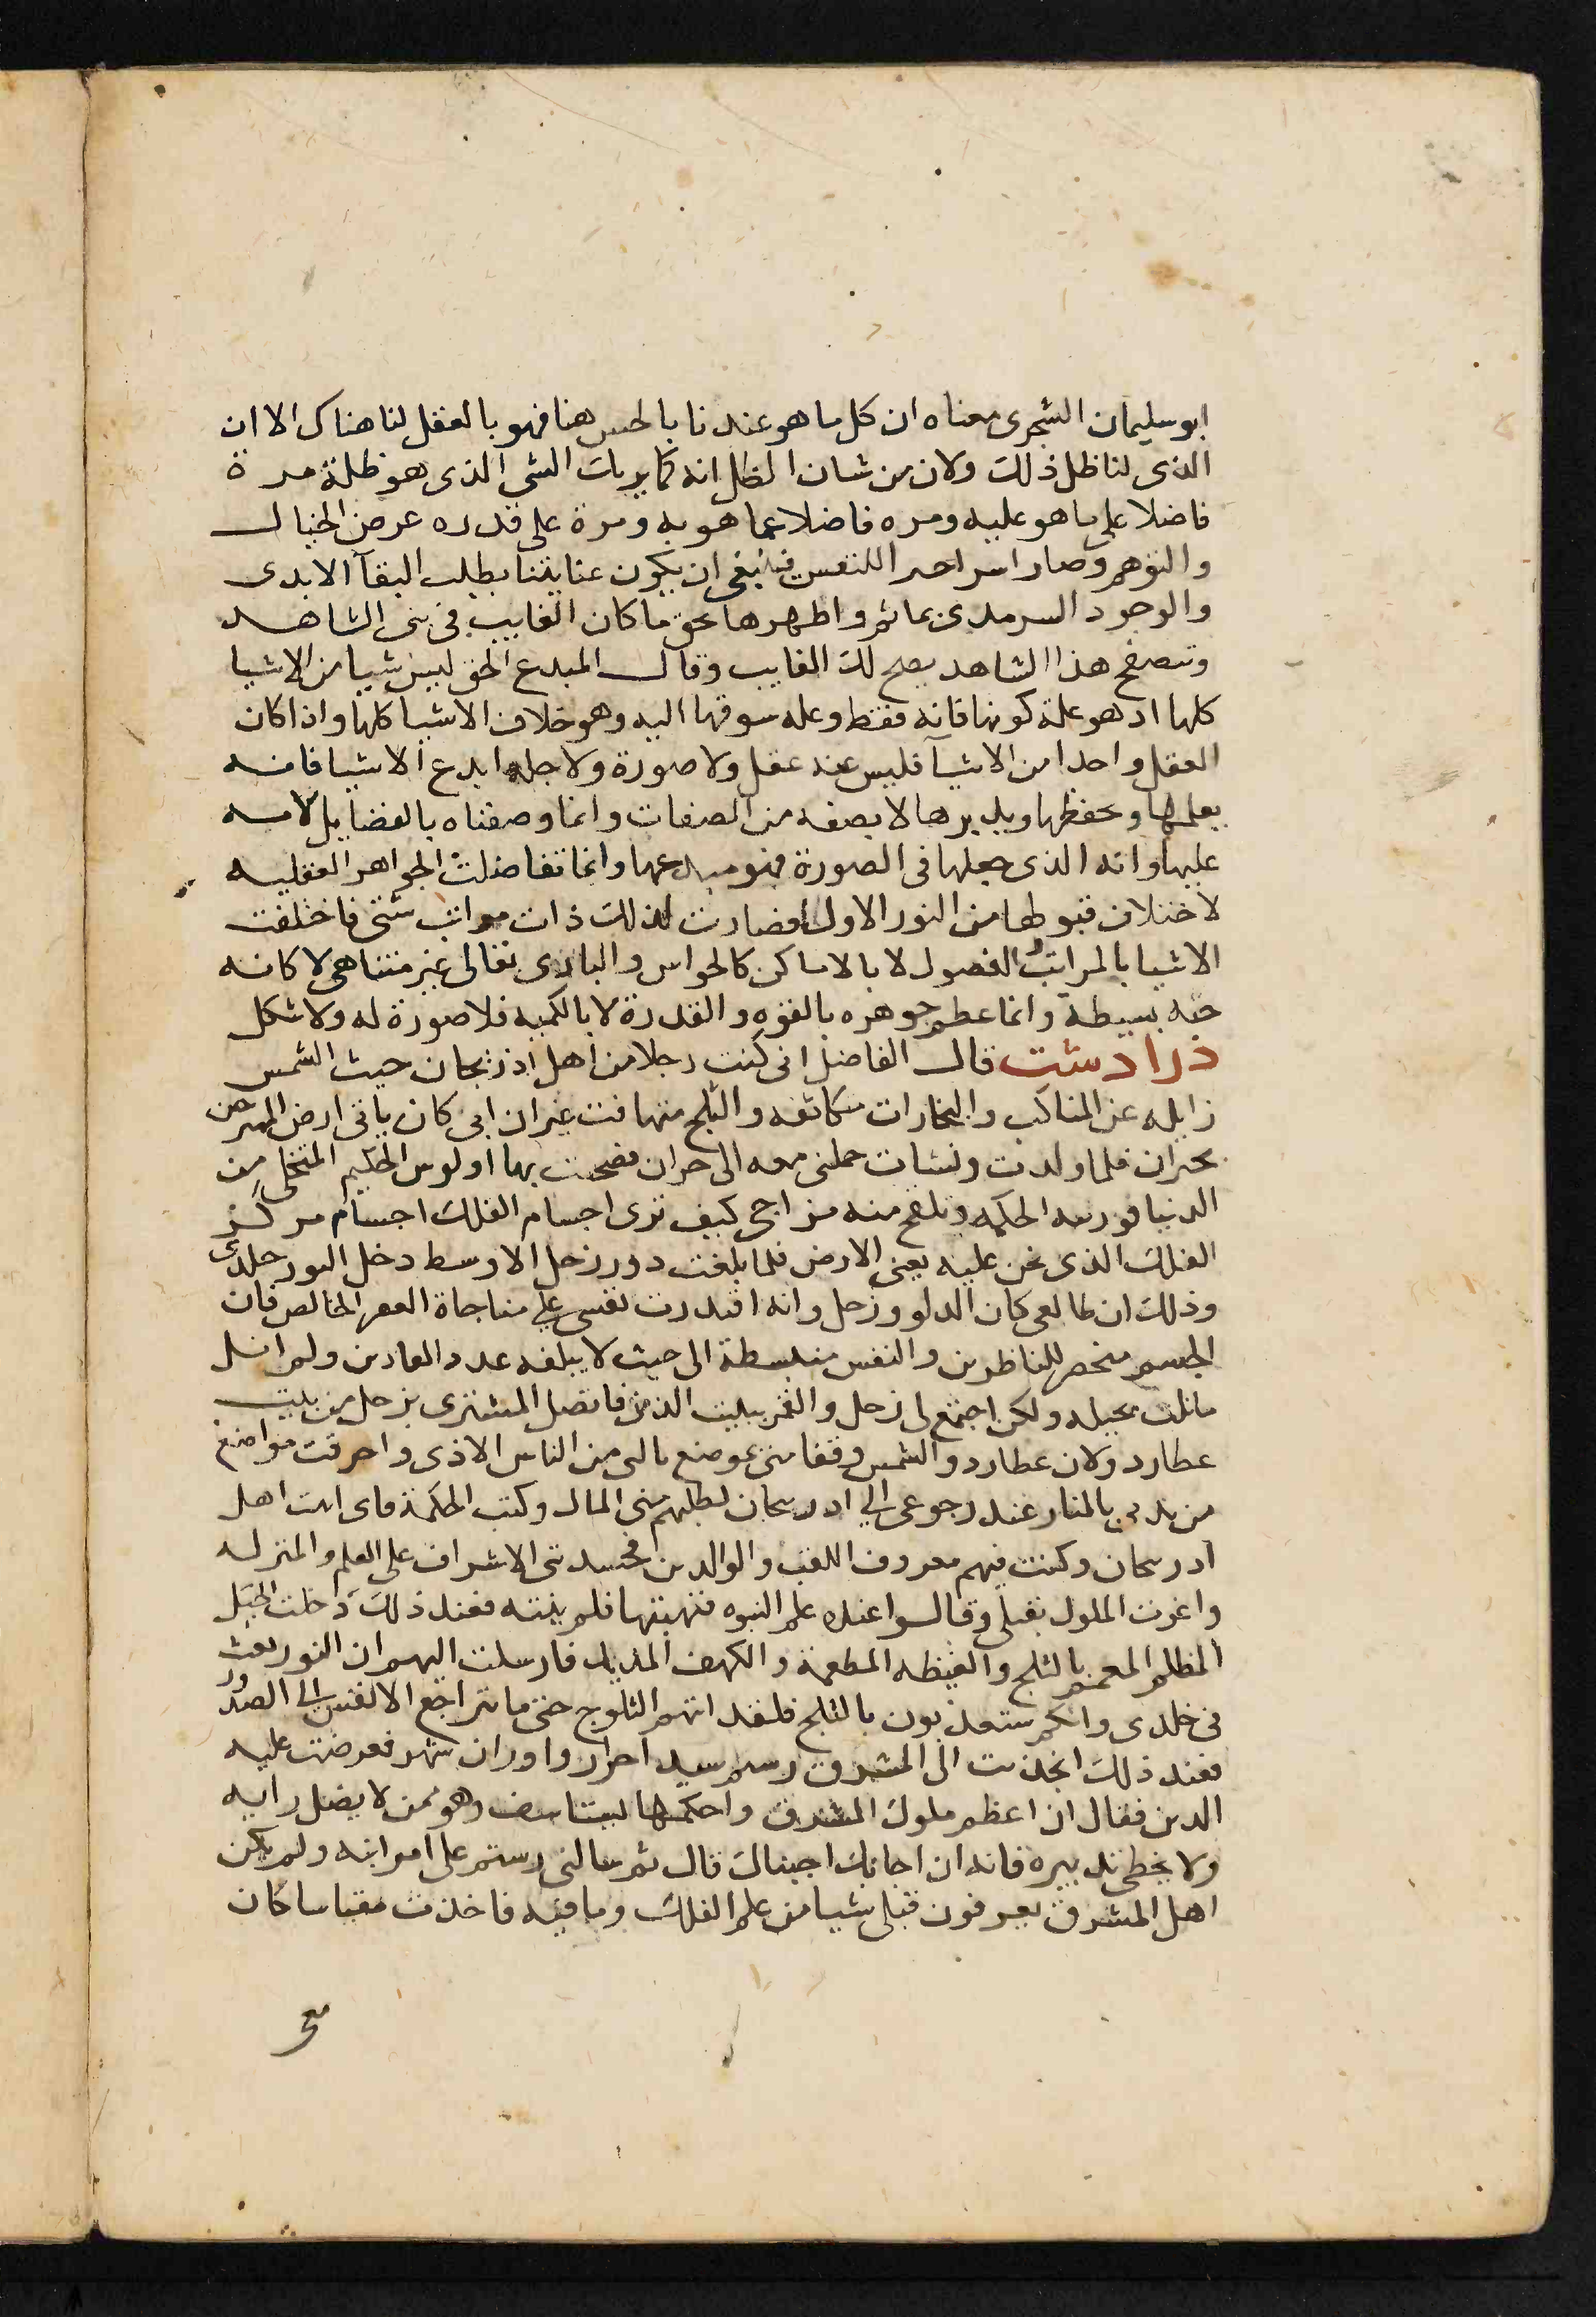 ابو سليمان الشجرى معناه ان كل ما هو عندنا بالحس هنا فهو بالعقل لنا هناك الا ان
الذى لنا ظل ذلك ولان من شان الظل انه كما يريك الشى الذى هو ظله مرة
فاضلا على ما هو عليه ومره فاضلا عما هو به ومرة على قدره عرض الخيال
والتوهم وصار للنفس فينبغى ان يكون عنايتنا بطلب البقآ الابدى
والوجود السرمدى ما كان الغايب فى الشاهد
وتصفح هذا الشاهد يصح لك الغايب وقال المبدع الحق ليس شيا من الاشيا
كلها اد هو علة كونها فانه فقط وعله سوقها اليه وهو خلاف الاشيا كلها واذا كان
العقل واحدا من الاشيآ فليس عنه عقل ولا صورة ولا جله ابدع الاشيا فانه
يعلمها ويحفظها ويدبرها لا بصفه من الصفات وانما وصفناه بالفضايل لانه
عليها وانه الذى جعلها فى الصورة فهو مبدعها وانما تفاضلت الجواهر العقليه
لاختلاف قبولها من النور الاول فصارت لذلك ذات مراتب شتى فاختلفت
الاشيا بالمراتب والفصول لا بالاماكن كالحواس والبارى تعالى غير متناهى لا كانه
جثه بسيطة وانما عظم جوهره بالقوه والقدرة لا بالكميه فلا صورة له ولا شكل
ذرادشت قال الفاضل انى كنت رجلا من اهل اذربجان حيث الشمس
زايله عن المناكب والبخارات متكاثفه والثلج متهافت غير ان ابى كان ياتى ارض
بحران فلما ولدت ونشات حملنى معه الى حران فصحبت بها اولوس الحكيم المتخلى من
الدنيا الحكمه منه مزاجى كيف ترى اجسام الفلك اجسام مركز
الفلك الذى نحن عليه يعنى الارض فلما بلغت دور زحل الاوسط دخل النور خلدى
وذلك ان طالعى كان الدلو وزحل وانه اقتدرت نفسى على مناجاة الخالص فان
الجسم منحصر للناظرين والنفس منبسطة الى حيث لا يبلغه عدد العادين ولم انل
ما نلت بحيله ولكن اجتمع لى زحل والقمر ببيت الدين فاتصل المشترى بزحل من بيت
عطارد ولان عطارد والشمس وقفا منى بموضع نالنى من الناس الاذى واحرقت مواضع
من بدنى بالنار عند رجوعى الى ادربيجان لطلبهم منى المال وكتب الحكمة اهل
ادربيجان وكنت فيهم معروف اللقب والوالدين فحسدتنى الاشراف على العلم والمنزله
واغرت الملوك بقتلى وقالوا عنده علم النبوه فعند ذلك دخلت الجبل
المظلم المعمم بالثلج والغيظه والكهف فارسلت اليهم ان النور
فى خلدى وانكم ستعذبون بالثلج فلقد اتتهم الثلوج حتى ما تتراجع الانفس الى الصدور
فعند ذلك انحذرت الى المشرق رستم سيد احرار فعرضت عليه
الدين فقال ان اعظم ملوك المشرق واحكمها وهو ممن لا يضل رايه
ولا يخطى تدبيره فانه ان اجابك اجبناك قال ثم سالنى رستم على امراته ولم يكن
اهل المشرق يعرفون قبلى شيا من علم الفلك وما فيه فاخذت مقياسا كان